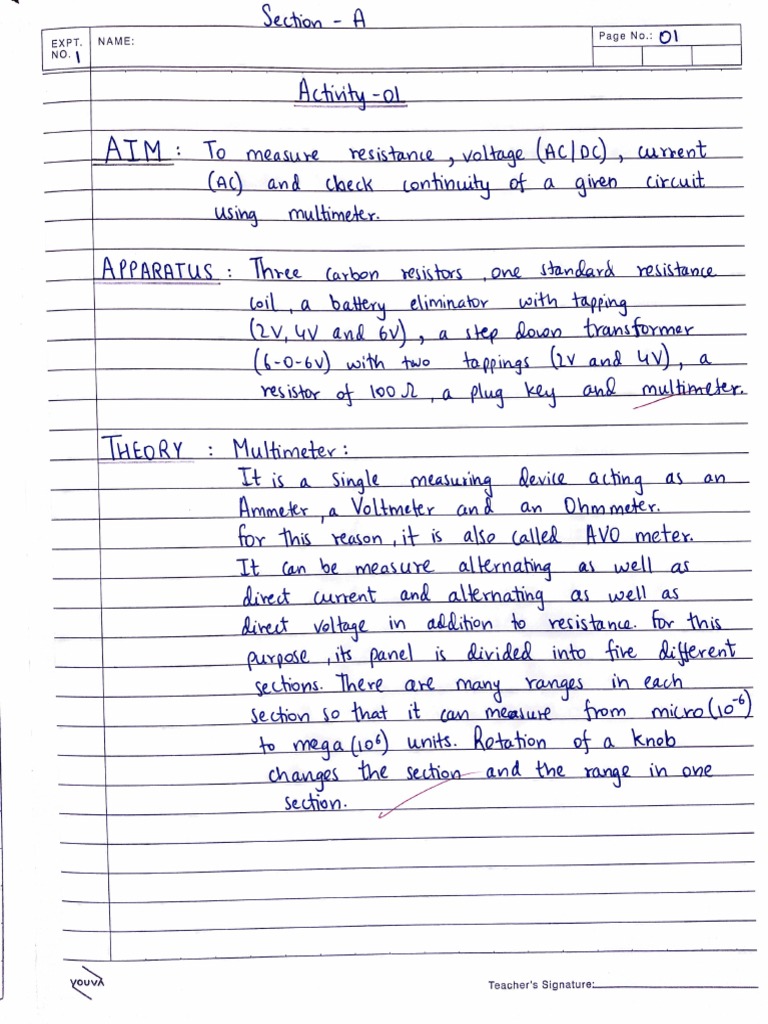 Section - A
EXPT. NO. 1
NAME:
Page No.: 01
Activity - 01
AIM : To measure resistance, voltage (AC/DC), current
(AC) and check continuity of a given circuit
using multimeter.
APPARATUS : Three carbon resistors, one standard resistance
coil, a battery eliminator with tapping
(2V, 4V and 6V), a step down transformer
(6-0-6V) with two tappings (2V and 4V), a
resistor of 100Ω, a plug key and multimeter.
THEORY : Multimeter :
It is a single measuring device acting as an
Ammeter, a Voltmeter and an Ohmmeter.
for this reason, it is also called AVO meter.
It can be measure alternating as well as
direct current and alternating as well as
direct voltage in addition to resistance. for this
purpose, its panel is divided into five different
sections. There are many ranges in each
section so that it can measure from micro (10⁻⁶)
to mega (10⁶) units. Rotation of a knob
changes the section and the range in one
section.
YOUVA
Teacher's Signature: